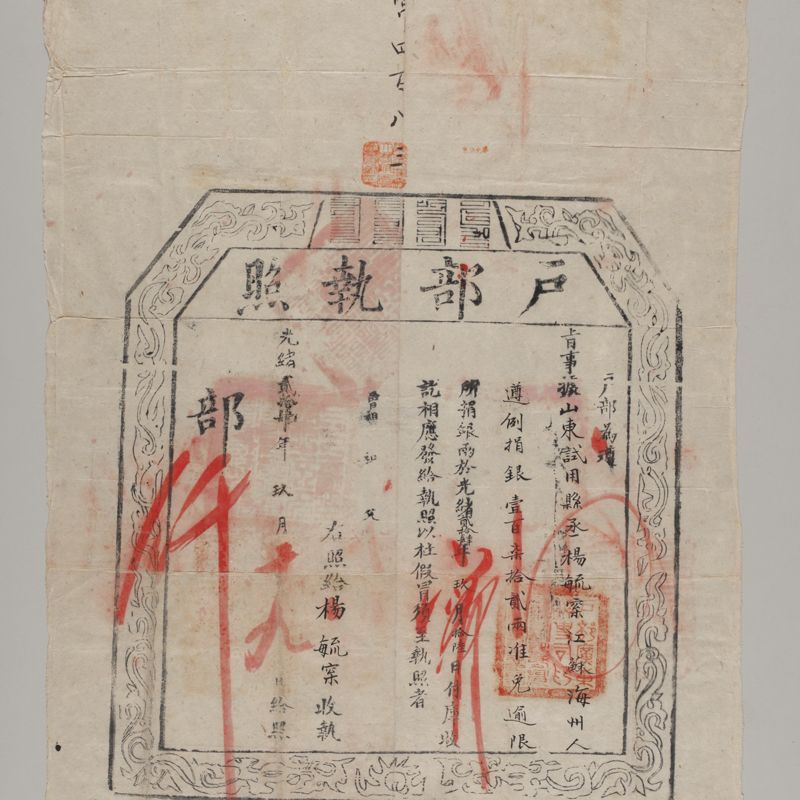 四百八三
戶部執照
戶部為遵
旨事據山東試用縣丞楊毓寀江蘇海州人
遵例捐銀壹百柒拾貳兩准免逾限
所捐銀兩於光緒貳拾肆年玖月拾陸日付庫收
訖相應發給執照以杜假冒須至執照者
曾祖 如 父
右照給楊毓寀收執
光緒貳拾肆年玖月十九日給照
部
行